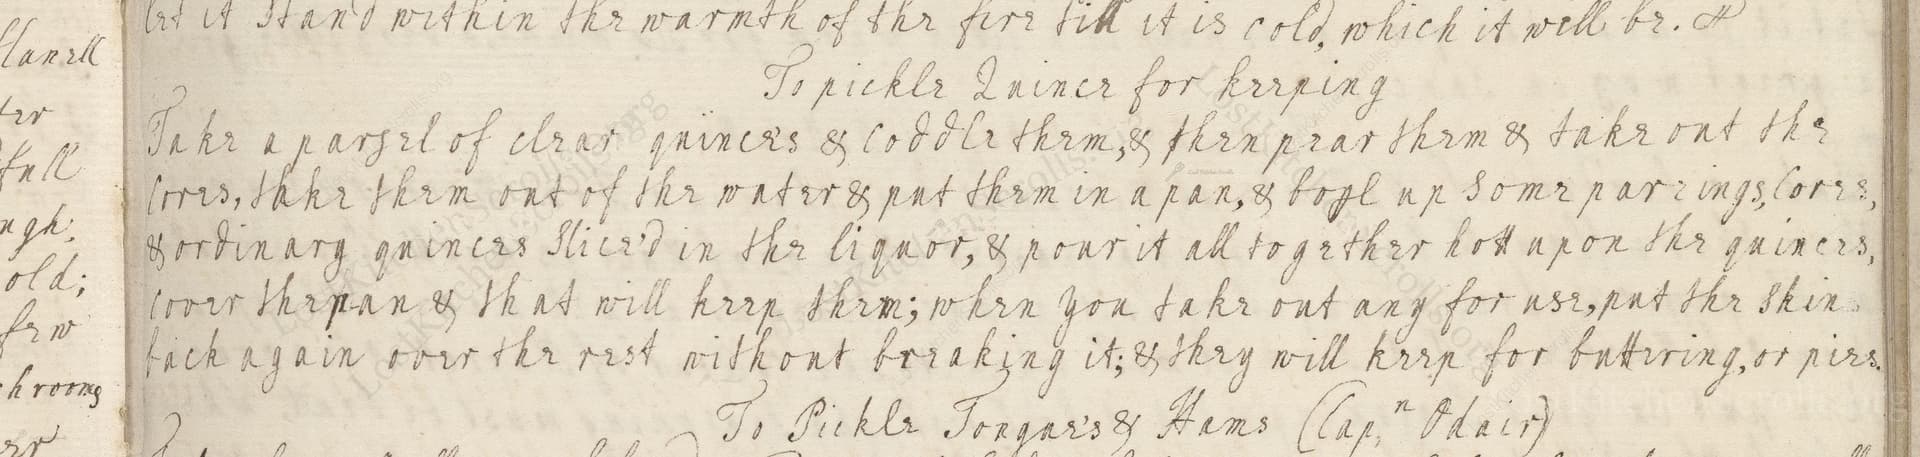 let it Stand within the warmth of the fire till it is cold, which it will be.
flanell
To pickle Quince for keeping
Take a parsel of clear quince's & Coddle them, & then pear them & take out the
Cores, take them out of the water & put them in a pan, & boyl up Some pareings, Cores,
full
& ordinary quinces Slice'd in the liquor, & pour it all together hott upon the quinces,
ugh;
old;
cover the pan & that will keep them; when you take out any for use, put the Skin
few
back again over the rest without breaking it; & they will keep for buttering, or pies.
hrooms
To Pickle Tongue's & Hams (Cap,n Odair)